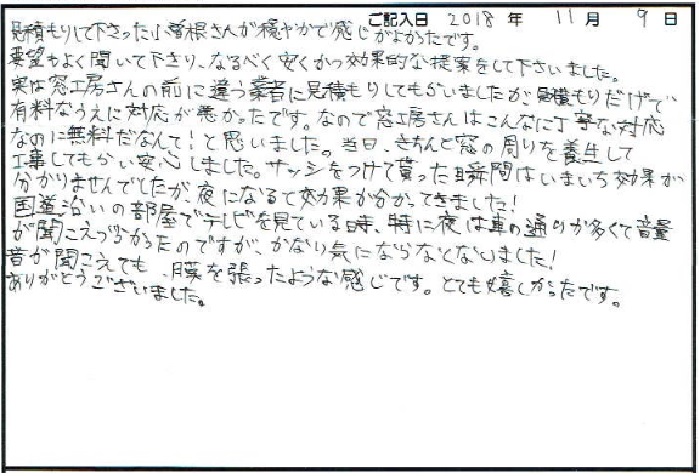 ご記入日 2018 年 11 月 9 日
見積もりして下さった小曽根さんが穏やかで感じがよかったです。
要望もよく聞いて下さり、なるべく安くかつ効果的な提案をして下さいました。
実は窓工房さんの前に違う業者に見積もりしてもらいましたが、見積もりだけで
有料なうえに対応が悪かったです。なので窓工房さんはこんなに丁寧な対応
なのに無料だなんて!と思いました。当日、きちんと窓の周りを養生して
工事してもらい安心しました。サッシをつけて貰った瞬間はいまいち効果が
分かりませんでしたが、夜になると効果が分かってきました!
国道沿いの部屋でテレビを見ている時、特に夜は車の通りが多くて音量
が聞こえづらかったのですが、かなり気にならなくなりました!
音が聞こえても、膜を張ったような感じです。とても嬉しかったです。
ありがとうございました。